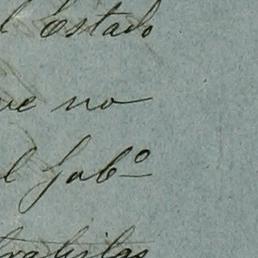 l Estado
ue no
l Gobº